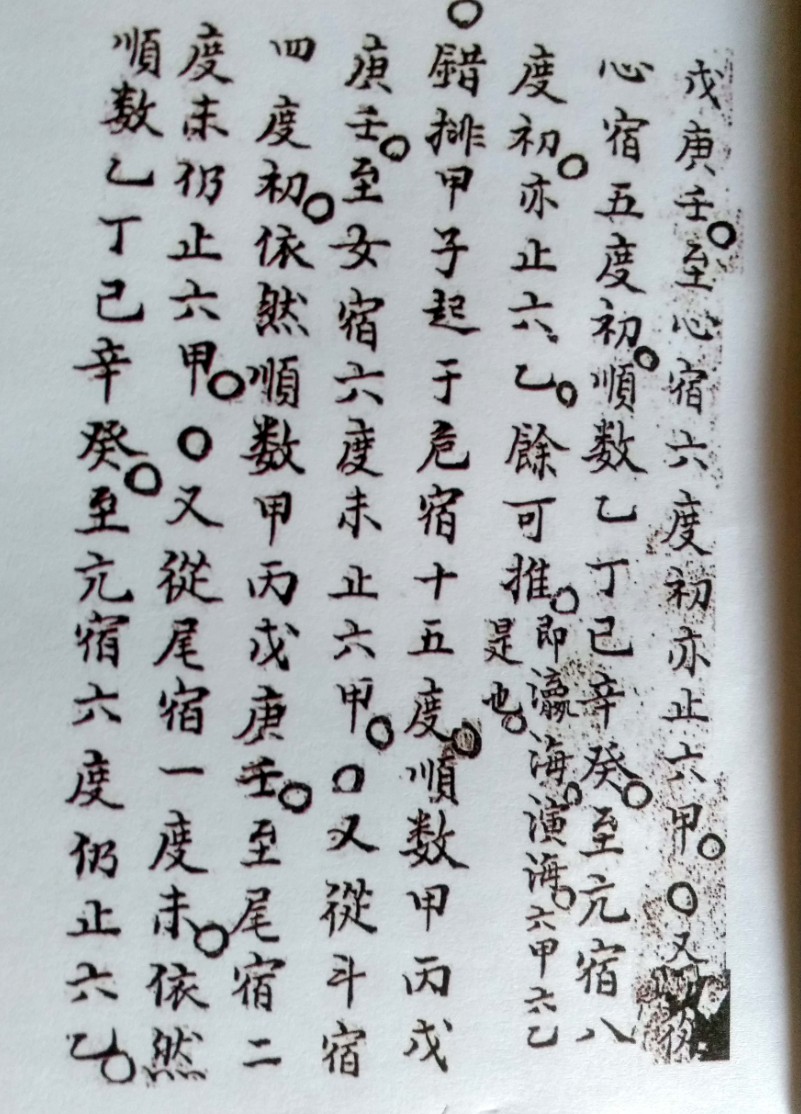 戊庚壬。至心宿六度初亦止六甲。○又從
心宿五度初。順数乙丁己辛癸。至亢宿八
度初。亦止六乙。餘可推。即瀛海。演海。六甲六乙
是也。
○錯排甲子起于危宿十五度。順数甲丙戊
庚壬。至女宿六度末止六甲。○又從斗宿
四度初。依然順数甲丙戊庚壬。至尾宿二
度末仍止六甲。○又從尾宿一度末。依然
順数乙丁己辛癸。至亢宿六度仍止六乙。